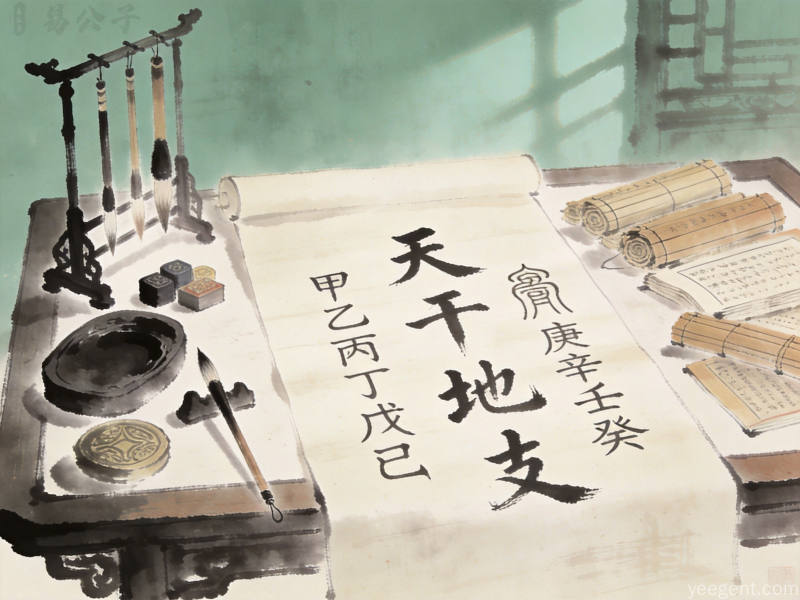 易公子
天干地支
甲乙丙丁戊己
庚辛壬癸
yeegent.com